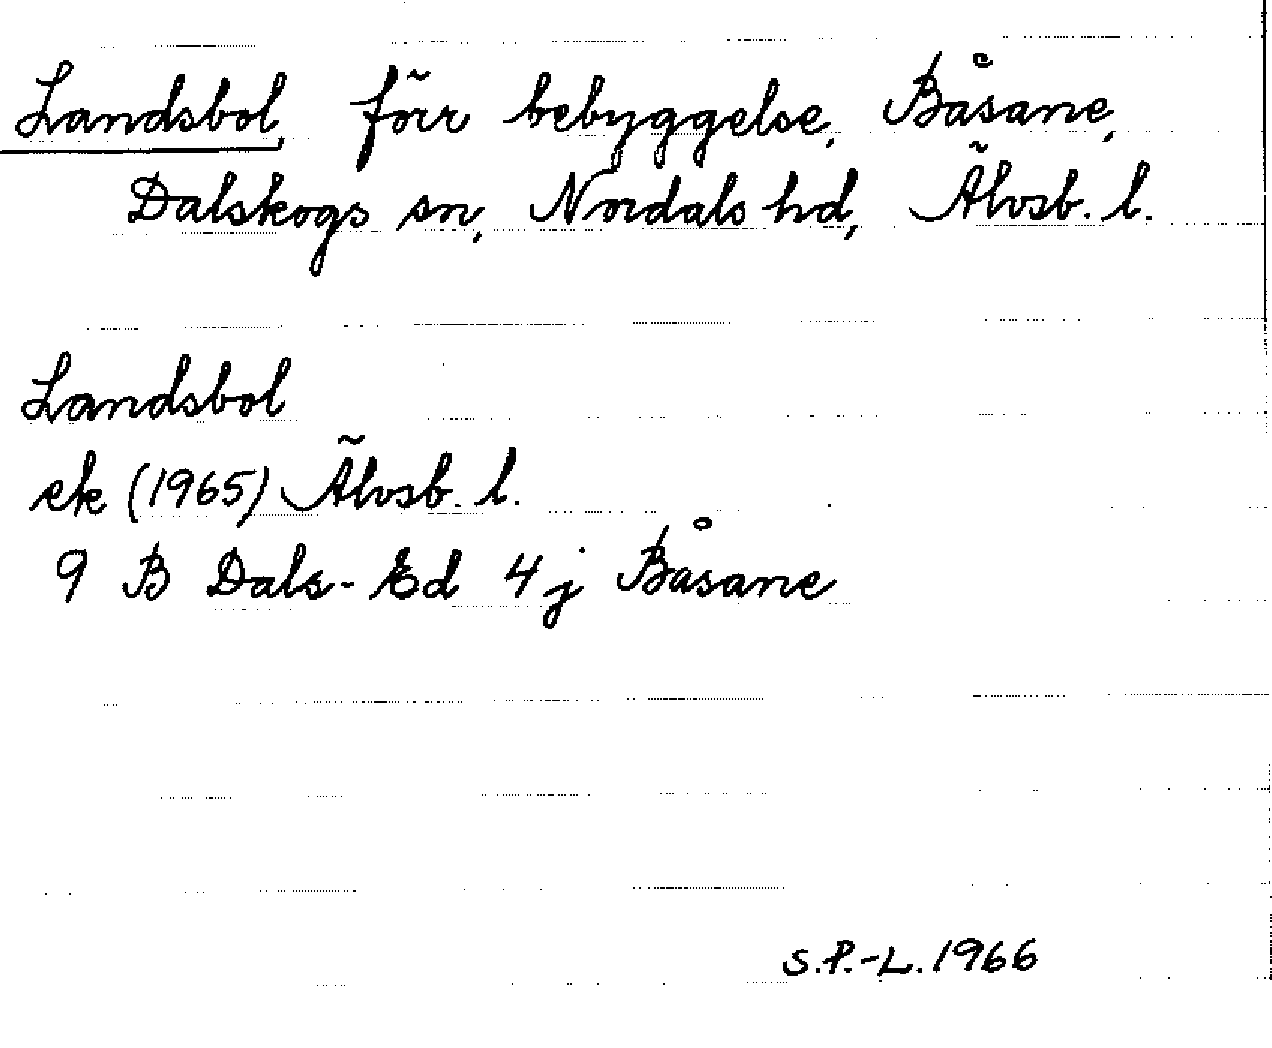 Landsbol, förr bebyggelse, Båsane,
Dalskogs sn, Nordals hd, Älvsb. l.
Landsbol
ek (1965) Älvsb. l.
9 B Dals-Ed 4 j Båsane
S.P.-L. 1966